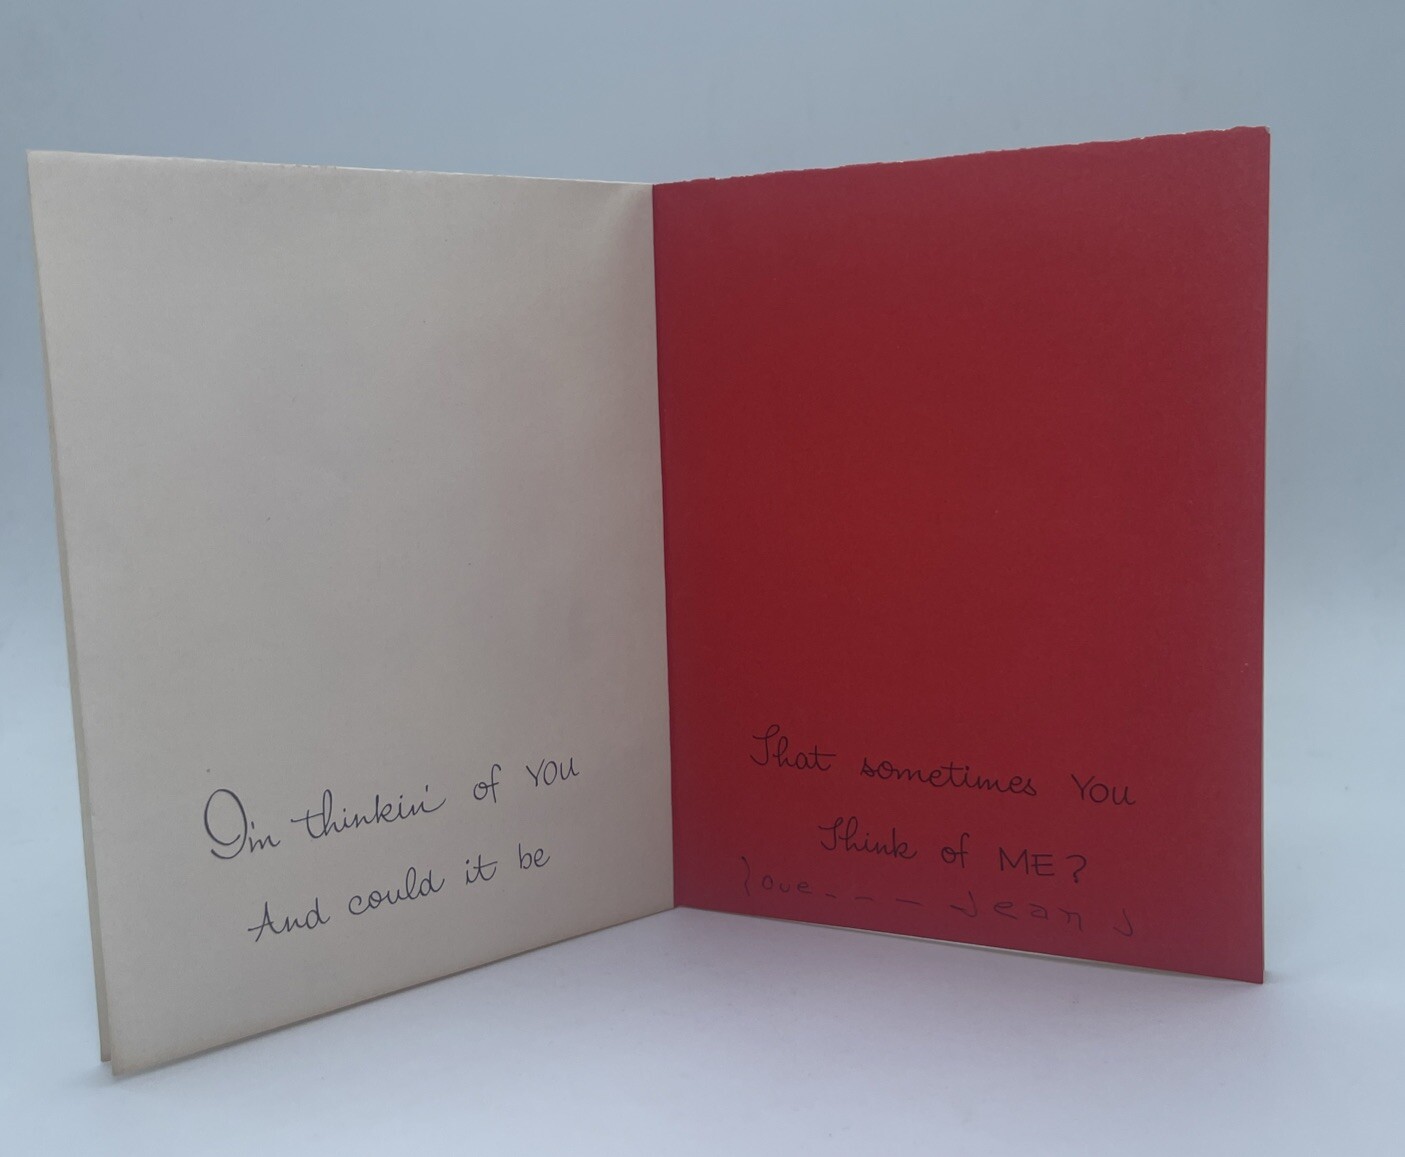 I'm thinkin' of YOU
And could it be
That sometimes YOU
Think of ME?
Love - - - Jean J